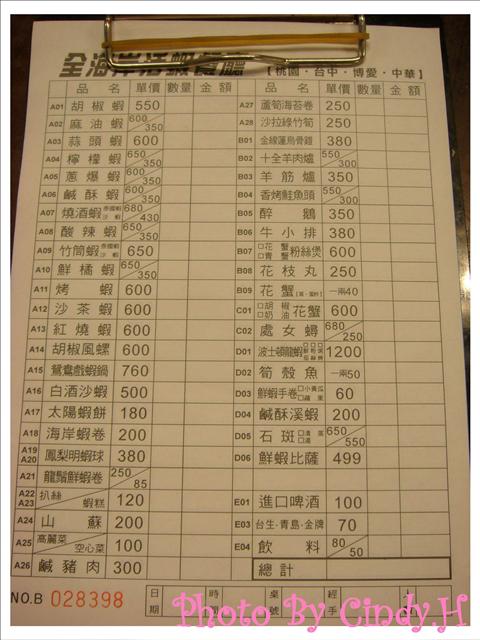 全海岸活蝦餐廳
【桃園·台中·博愛·中華】
品名 單價 數量 金額
A01 胡椒蝦 550
A02 麻油蝦 600/350
A03 蒜頭蝦 600
A04 檸檬蝦 650/350
A05 蔥爆蝦 600/350
A06 鹹酥蝦 600/350
A07 燒酒蝦 泰國蝦 沙蝦 680/430
A08 酸辣蝦 650/350
A09 竹筒蝦 泰國蝦 沙蝦 650
A10 鮮橘蝦 650/350
A11 烤蝦 600
A12 沙茶蝦 600
A13 紅燒蝦 600
A14 胡椒風螺 600
A15 鴛鴦戲蝦鍋 760
A16 白酒沙蝦 500
A17 太陽蝦餅 180
A18 海岸蝦卷 200
A19 A20 鳳梨明蝦球 380
A21 龍鬚鮮蝦卷 250/85
A22 A23 扒絲/蝦糕 120
A24 山蘇 200
A25 高麗菜/空心菜 100
A26 鹹豬肉 300
品名 單價 數量 金額
A27 蘆筍海苔卷 250
A28 沙拉綠竹筍 250
B01 金線蓮烏骨雞 380
B02 十全羊肉爐 550/300
B03 羊筋爐 350
B04 香烤鮭魚頭 550/300
B05 醉鵝 350
B06 牛小排 380
B07 □花蟹 □青蟹 粉絲煲 600
B08 花枝丸 250
B09 花蟹 一兩40
C01 □胡椒 □奶油 花蟹 600
C02 處女蟳 680/250
D01 波士頓龍蝦 1200
D02 筍殼魚 一兩50
D03 鮮蝦手卷 □小黃瓜 □蘋果 60
D04 鹹酥溪蝦 200
D05 石斑 □清蒸 □湯 650/550
D06 鮮蝦比薩 499
E01 進口啤酒 100
E03 台生·青島·金牌 70
E04 飲料 80/50
總計
NO.B 028398
日期 時間 桌號 經手
Photo By Cindy.H